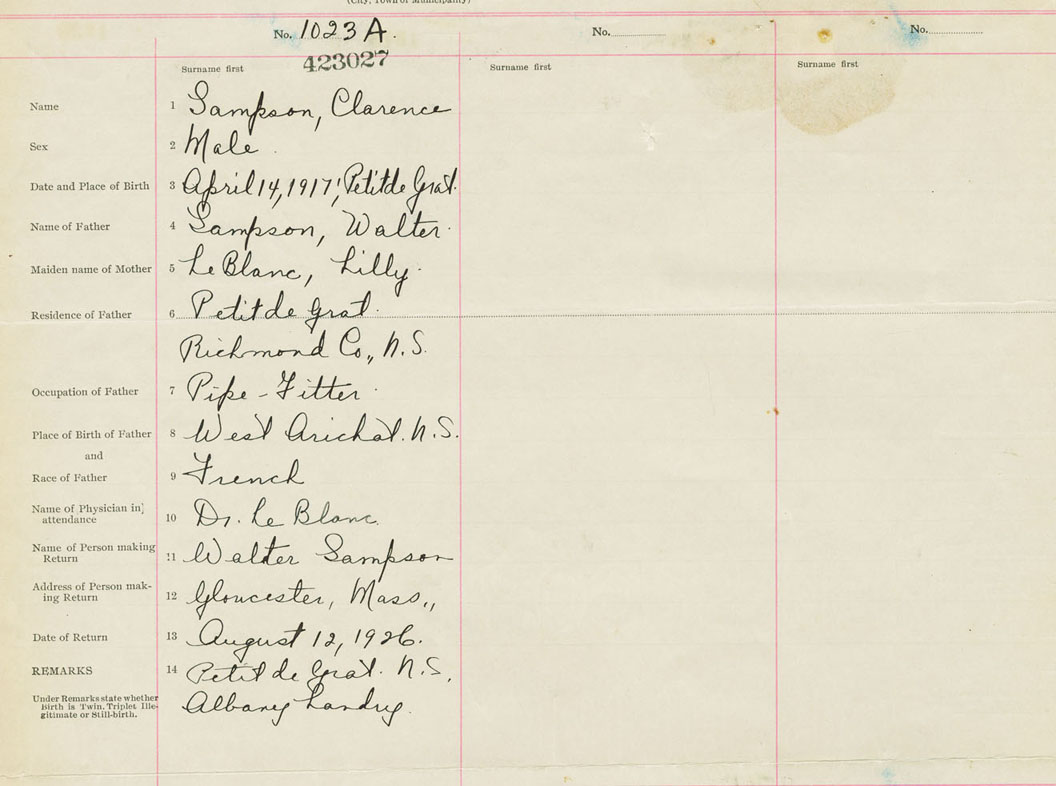 (City, Town or Municipality)
No. 1023 A. No. No.
423027
Surname first Surname first Surname first
Name 1 Sampson, Clarence
Sex 2 Male
Date and Place of Birth 3 April 14, 1917; Petit de Grat.
Name of Father 4 Sampson, Walter.
Maiden name of Mother 5 Le Blanc, Lilly.
Residence of Father 6 Petit de Grat.
Richmond Co., N.S.
Occupation of Father 7 Pipe-Fitter.
Place of Birth of Father 8 West Arichat. N.S.
and
Race of Father 9 French
Name of Physician in
attendance 10 Dr. Le Blanc.
Name of Person making
Return 11 Walter Sampson
Address of Person mak-
ing Return 12 Gloucester, Mass.,
Date of Return 13 August 12, 1926.
REMARKS 14 Petit de Grat. N.S.
Under Remarks state whether
Birth is Twin, Triplet Ille-
gitimate or Still-birth.
Albany Landry.